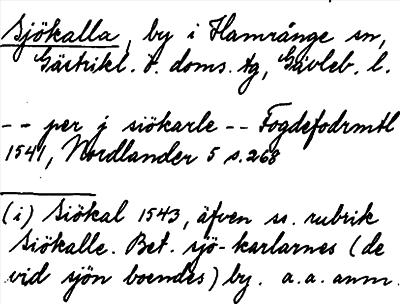 Sjökalla, by i Hamrånge sn,
Gästrikl. ö. doms. tg, Gävleb. l.
-- per j siökarle -- Fogdefodrmtl
1541, Nordlander 5 s. 268
(i) Siökal 1543, äfven ss. rubrik
Siökalle. Bet. sjö-karlarnes (de
vid sjön boendes) by. a.a. anm.